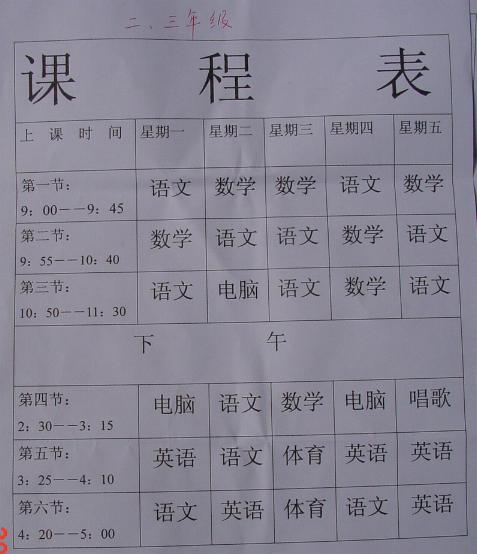 二、三年级
课 程 表
上 课 时 间 星期一 星期二 星期三 星期四 星期五
第一节：
9：00－－9：45 语文 数学 数学 语文 数学
第二节：
9：55－－10：40 数学 语文 语文 数学 语文
第三节：
10：50－－11：30 语文 电脑 语文 数学 语文
下 午
第四节：
2：30－－3：15 电脑 语文 数学 电脑 唱歌
第五节：
3：25－－4：10 英语 语文 体育 英语 英语
第六节：
4：20－－5：00 语文 英语 体育 语文 英语